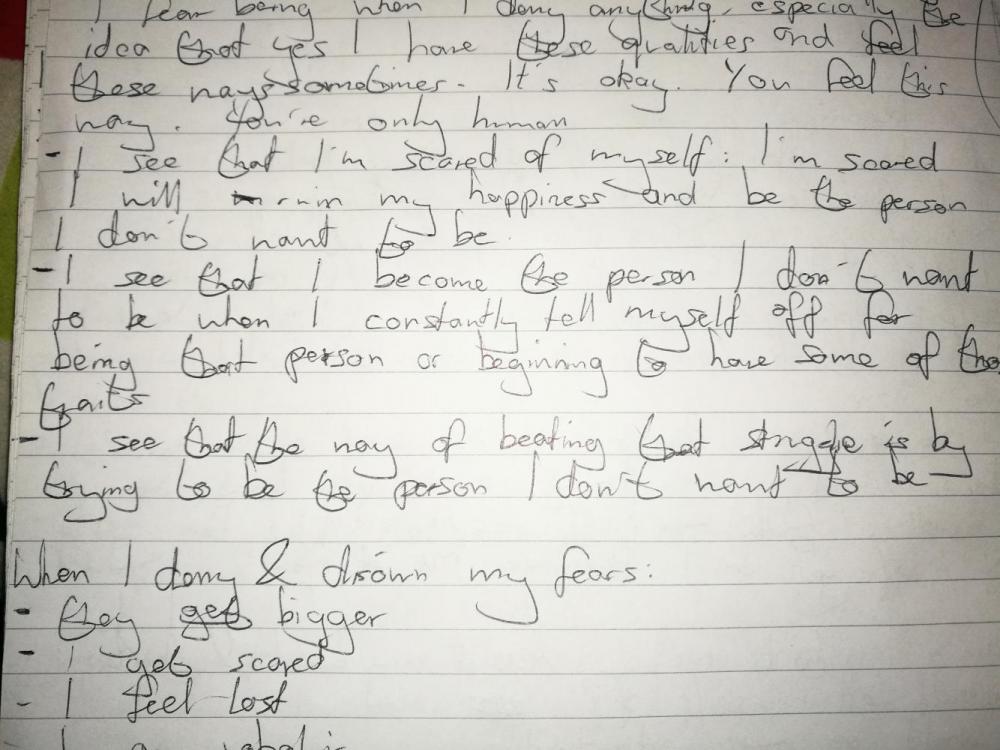 I fear being when I deny anything, especially the
idea that yes I have these qualities and feel
these ways sometimes. It's okay. You feel this
way. You're only human
- I see that I'm scared of myself: I'm scared
I will ruin my happiness and be the person
I don't want to be.
- I see that I become the person I don't want
to be when I constantly tell myself off for
being that person or beginning to have some of the
traits
- I see that the way of beating that struggle is by
trying to be the person I don't want to be
When I deny & drown my fears:
- they get bigger
- I get scared
- I feel lost